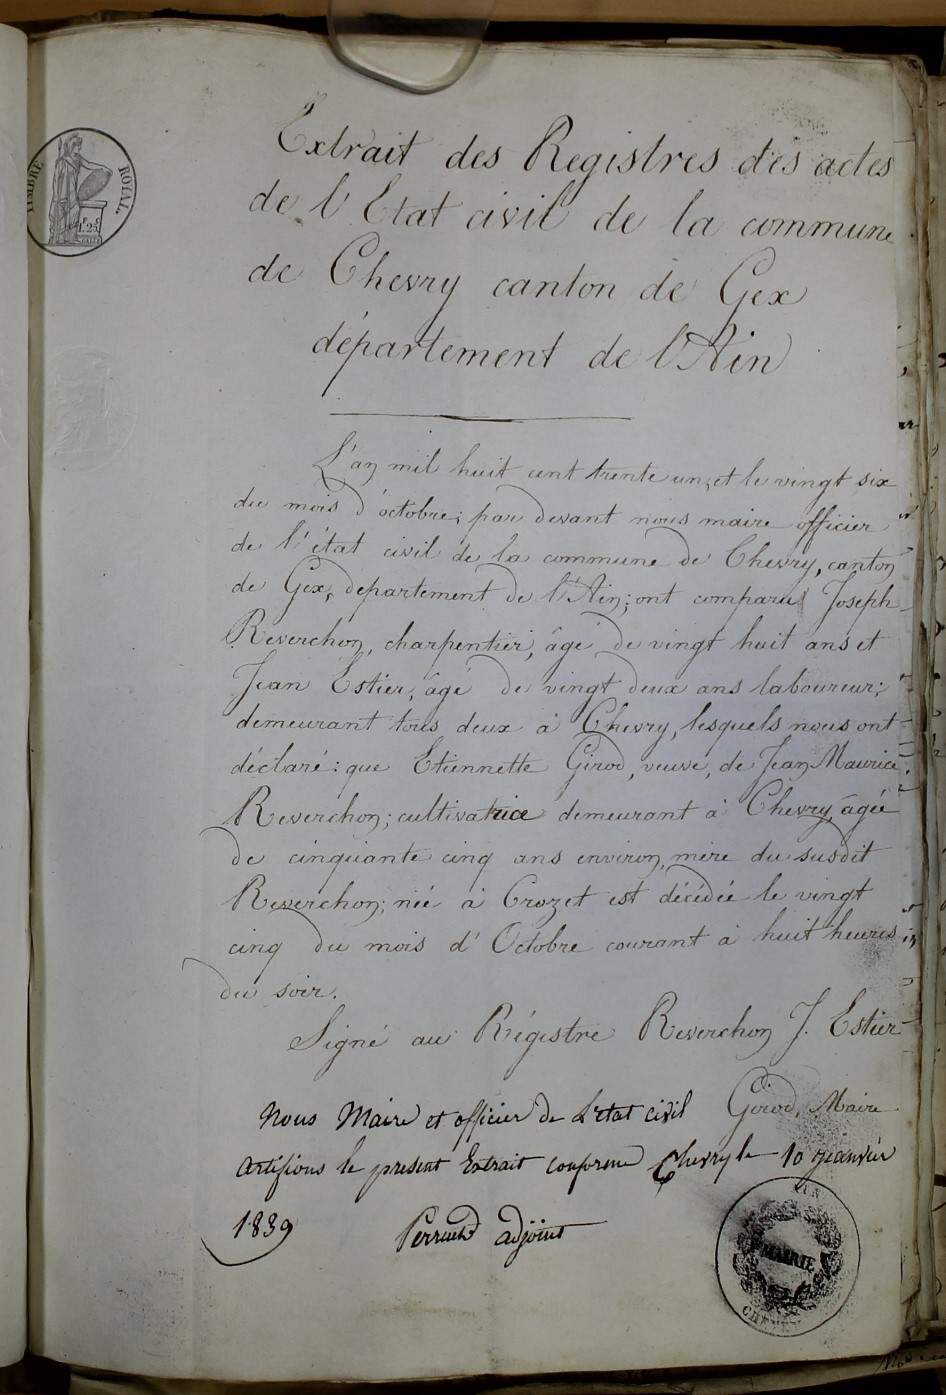 TIMBRE ROYAL.
1F.25C
Extrait des Registres des actes
de l'Etat civil de la commune
de Chevry canton de Gex
département de l'Ain
L'an mil huit cent trente un, et le vingt six
du mois d'octobre; par devant nous maire officier
de l'état civil de la commune de Chevry, canton
de Gex, département de l'Ain; ont comparu Joseph
Reverchon, charpentier, âgé de vingt huit ans et
Jean Estier, âgé de vingt deux ans laboureur;
demeurant tous deux à Chevry, lesquels nous ont
déclaré: que Etiennette Girod, veuve, de Jean Maurice
Reverchon; cultivatrice demeurant à Chevry, âgée
de cinquante cinq ans environ, mère du susdit
Reverchon; née à Crozet est décédée le vingt
cinq du mois d'Octobre courant à huit heures
du soir.
Signé au Régistre Reverchon J. Estier
Girod, Maire
Nous Maire et officier de L'etat civil
Certifions le present Extrait conforme Chevry le 10 Jeanvier
1839 Perruad adjoint
AIN
MAIRIE
CHEVRY